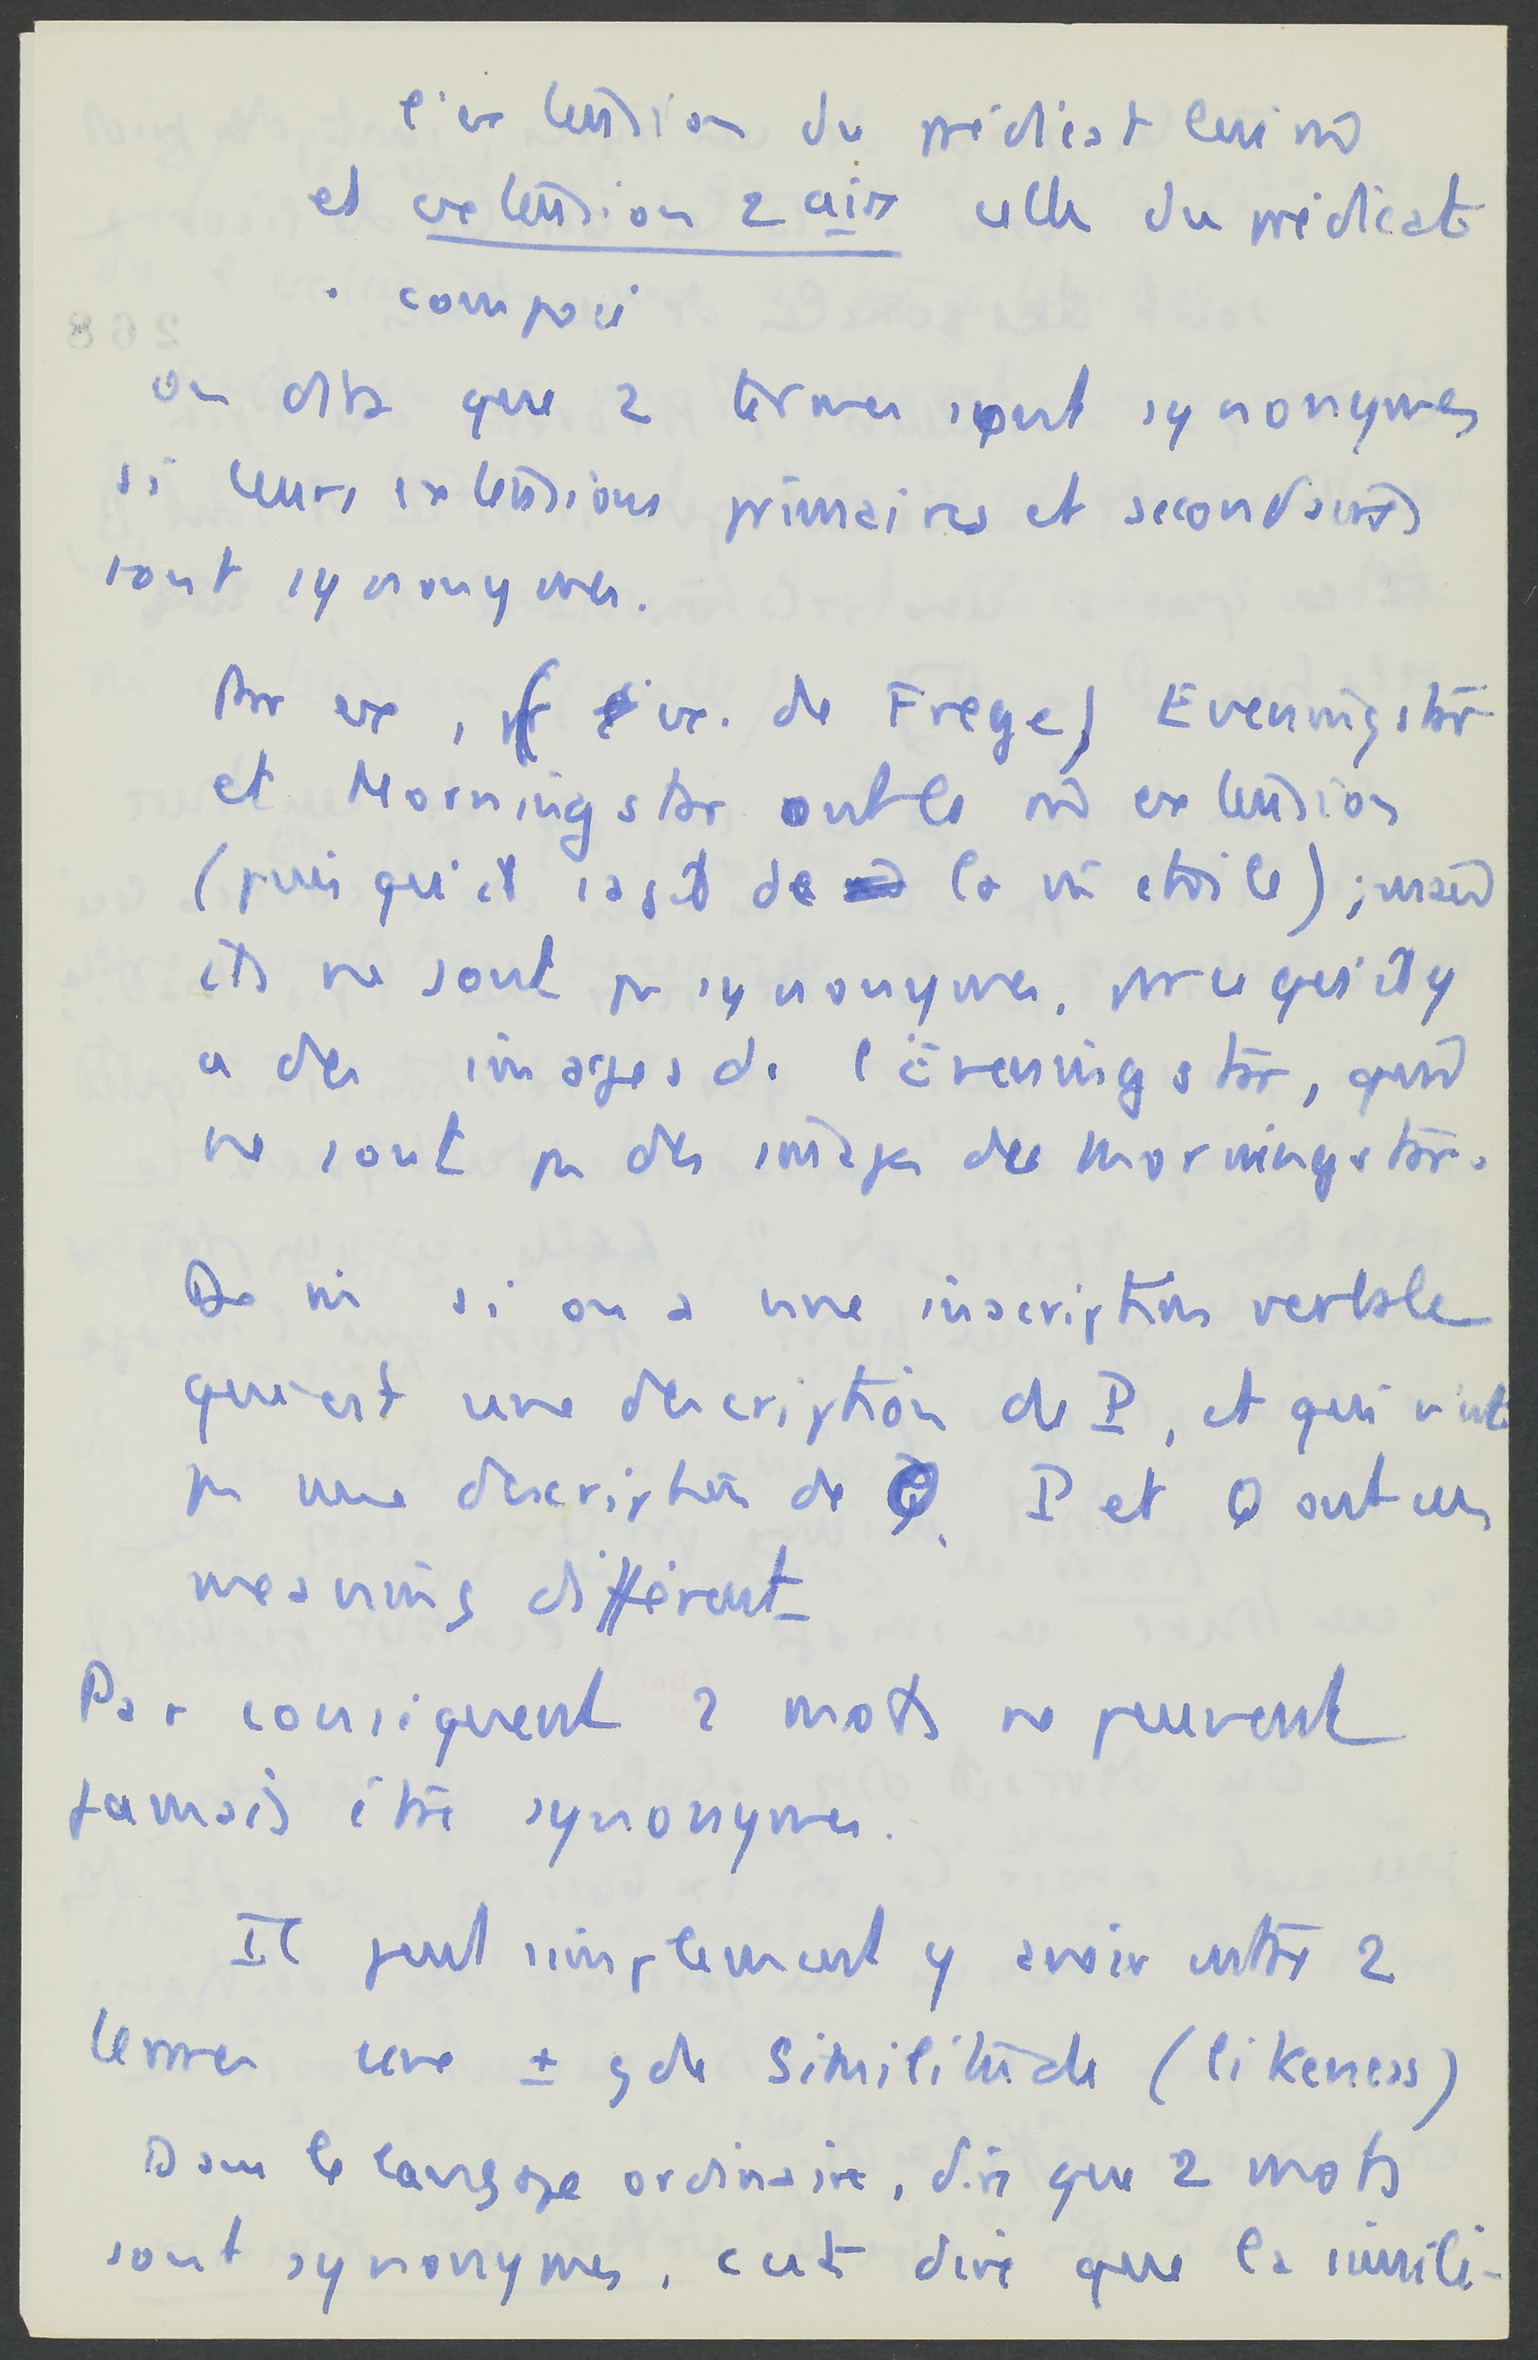 l'extension du prédicat lui m̄
et extension 2aire celle du prédicat
composé
on dira que 2 termes sont synonymes
si leurs extensions primaires et secondaires
sont synonymes.
Par ex, (ex. de Frege) Eveningstar
et Morningstar ont la m̄ extension
(puisqu'il sagit de la m̄ etoile) ; mais
ils ne sont pas synonymes, parce qu'il y
a des images de l'Eveningstar, qui
ne sont pas des images de Morningstar.
De m̄ si on a une inscription verbale
qui est une description de P, et qui n'est
pas une description de Q, P et Q ont un
meaning différent
Par conséquent 2 mots ne peuvent
jamais être synonymes.
Il peut simplement y avoir entre 2
termes une ± gde similitude (likeness)
Dans le langage ordinaire, dire que 2 mots
sont synonymes, c'est dire que la simili-
268